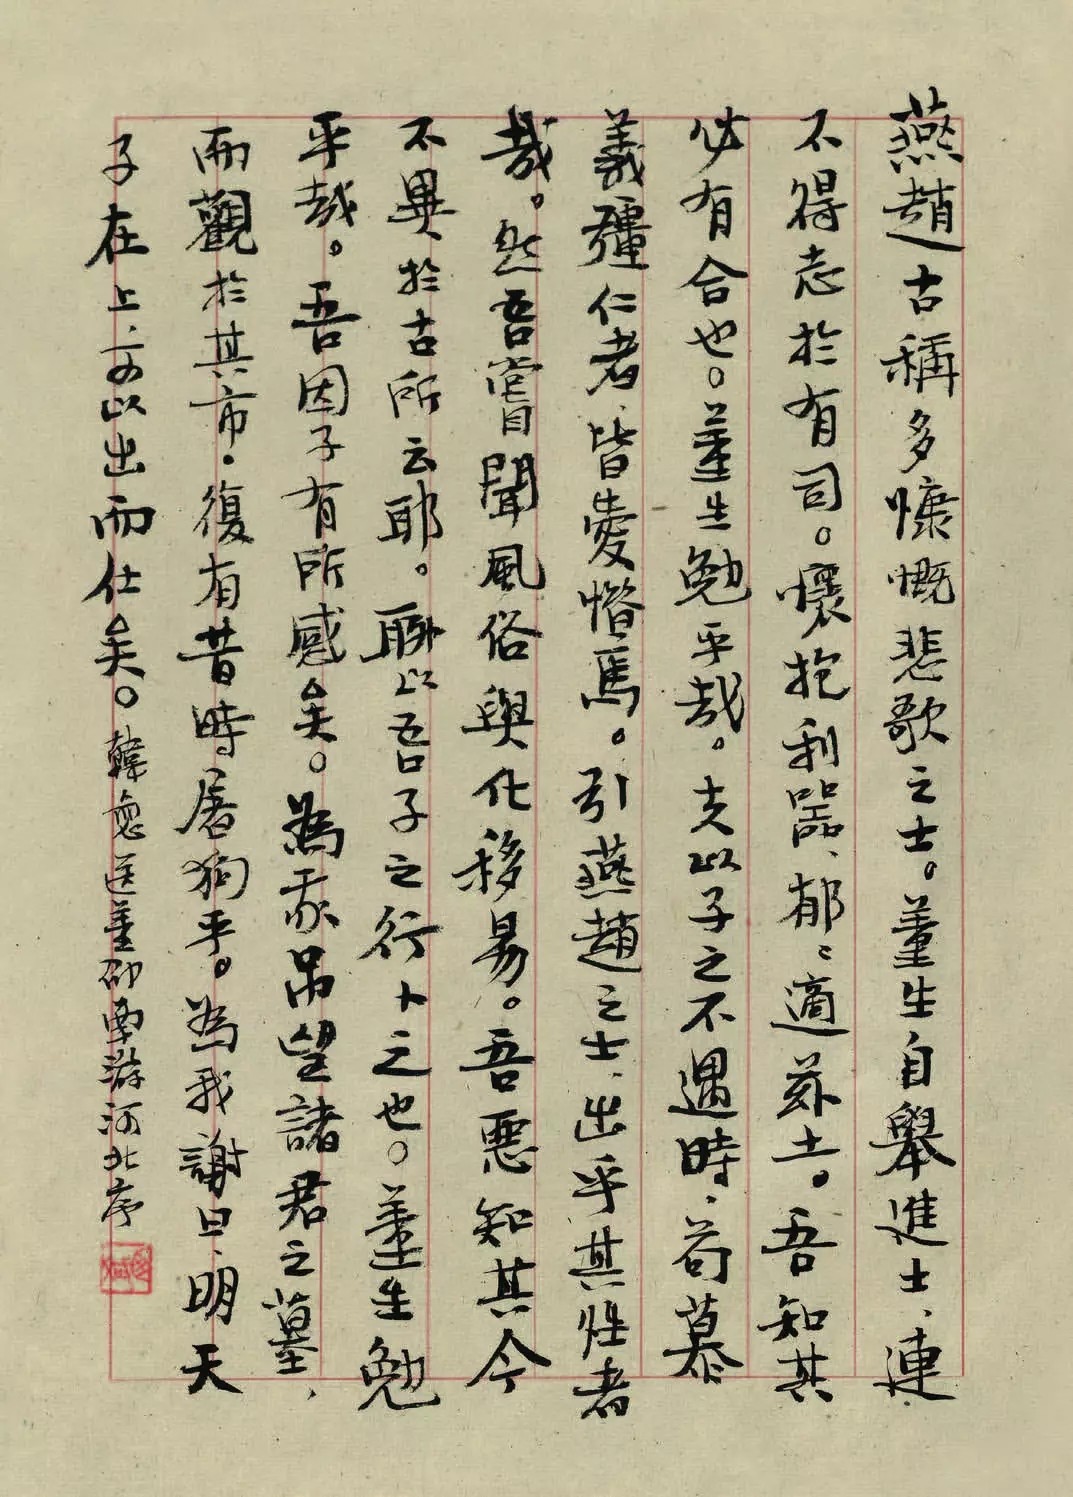 燕趙古稱多慷慨悲歌之士。董生自舉進士、連
不得志於有司。懷抱利器、郁〻適茲土。吾知其
必有合也。董生勉乎哉。夫以子之不遇時、苟慕
義彊仁者、皆愛惜焉。引燕趙之士、出乎其性者
哉。然吾嘗聞風俗與化移易。吾惡知其今
不異於古所云耶。聊以吾子之行卜之也。董生勉
乎哉。吾因子有所感矣。為我吊望諸君之墓、
而觀於其市、復有昔時屠狗乎。為我謝曰、明天
子在上、可以出而仕矣。韓愈送董邵南游河北序